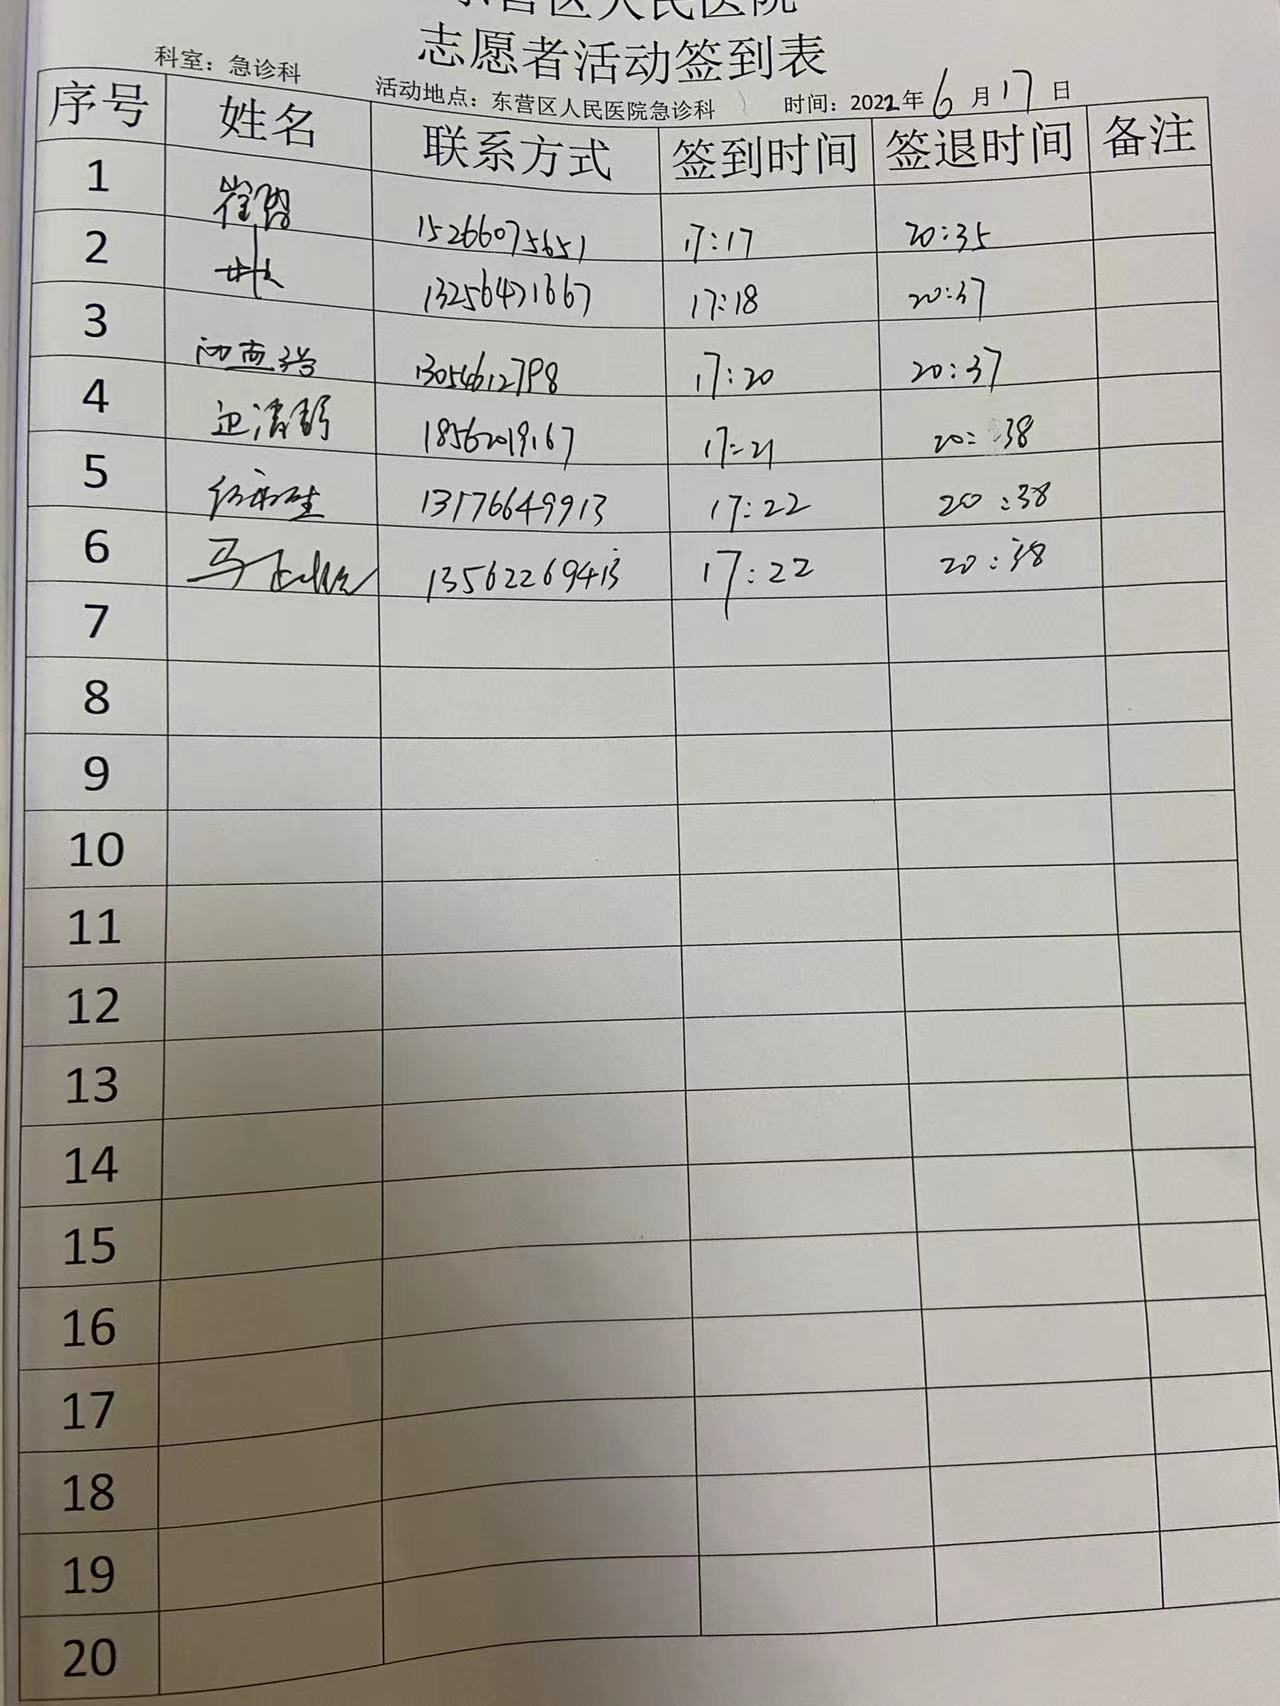 东营区人民医院
志愿者活动签到表
科室：急诊科 活动地点：东营区人民医院急诊科 时间：2022年6月17日
序号 姓名 联系方式 签到时间 签退时间 备注
1 崔 15266075651 17:17 20:35
2 13256471667 17:18 20:37
3 13054612798 17:20 20:37
4 18562019167 17:21 20:38
5 13176649913 17:22 20:38
6 马 13562269413 17:22 20:38
7
8
9
10
11
12
13
14
15
16
17
18
19
20